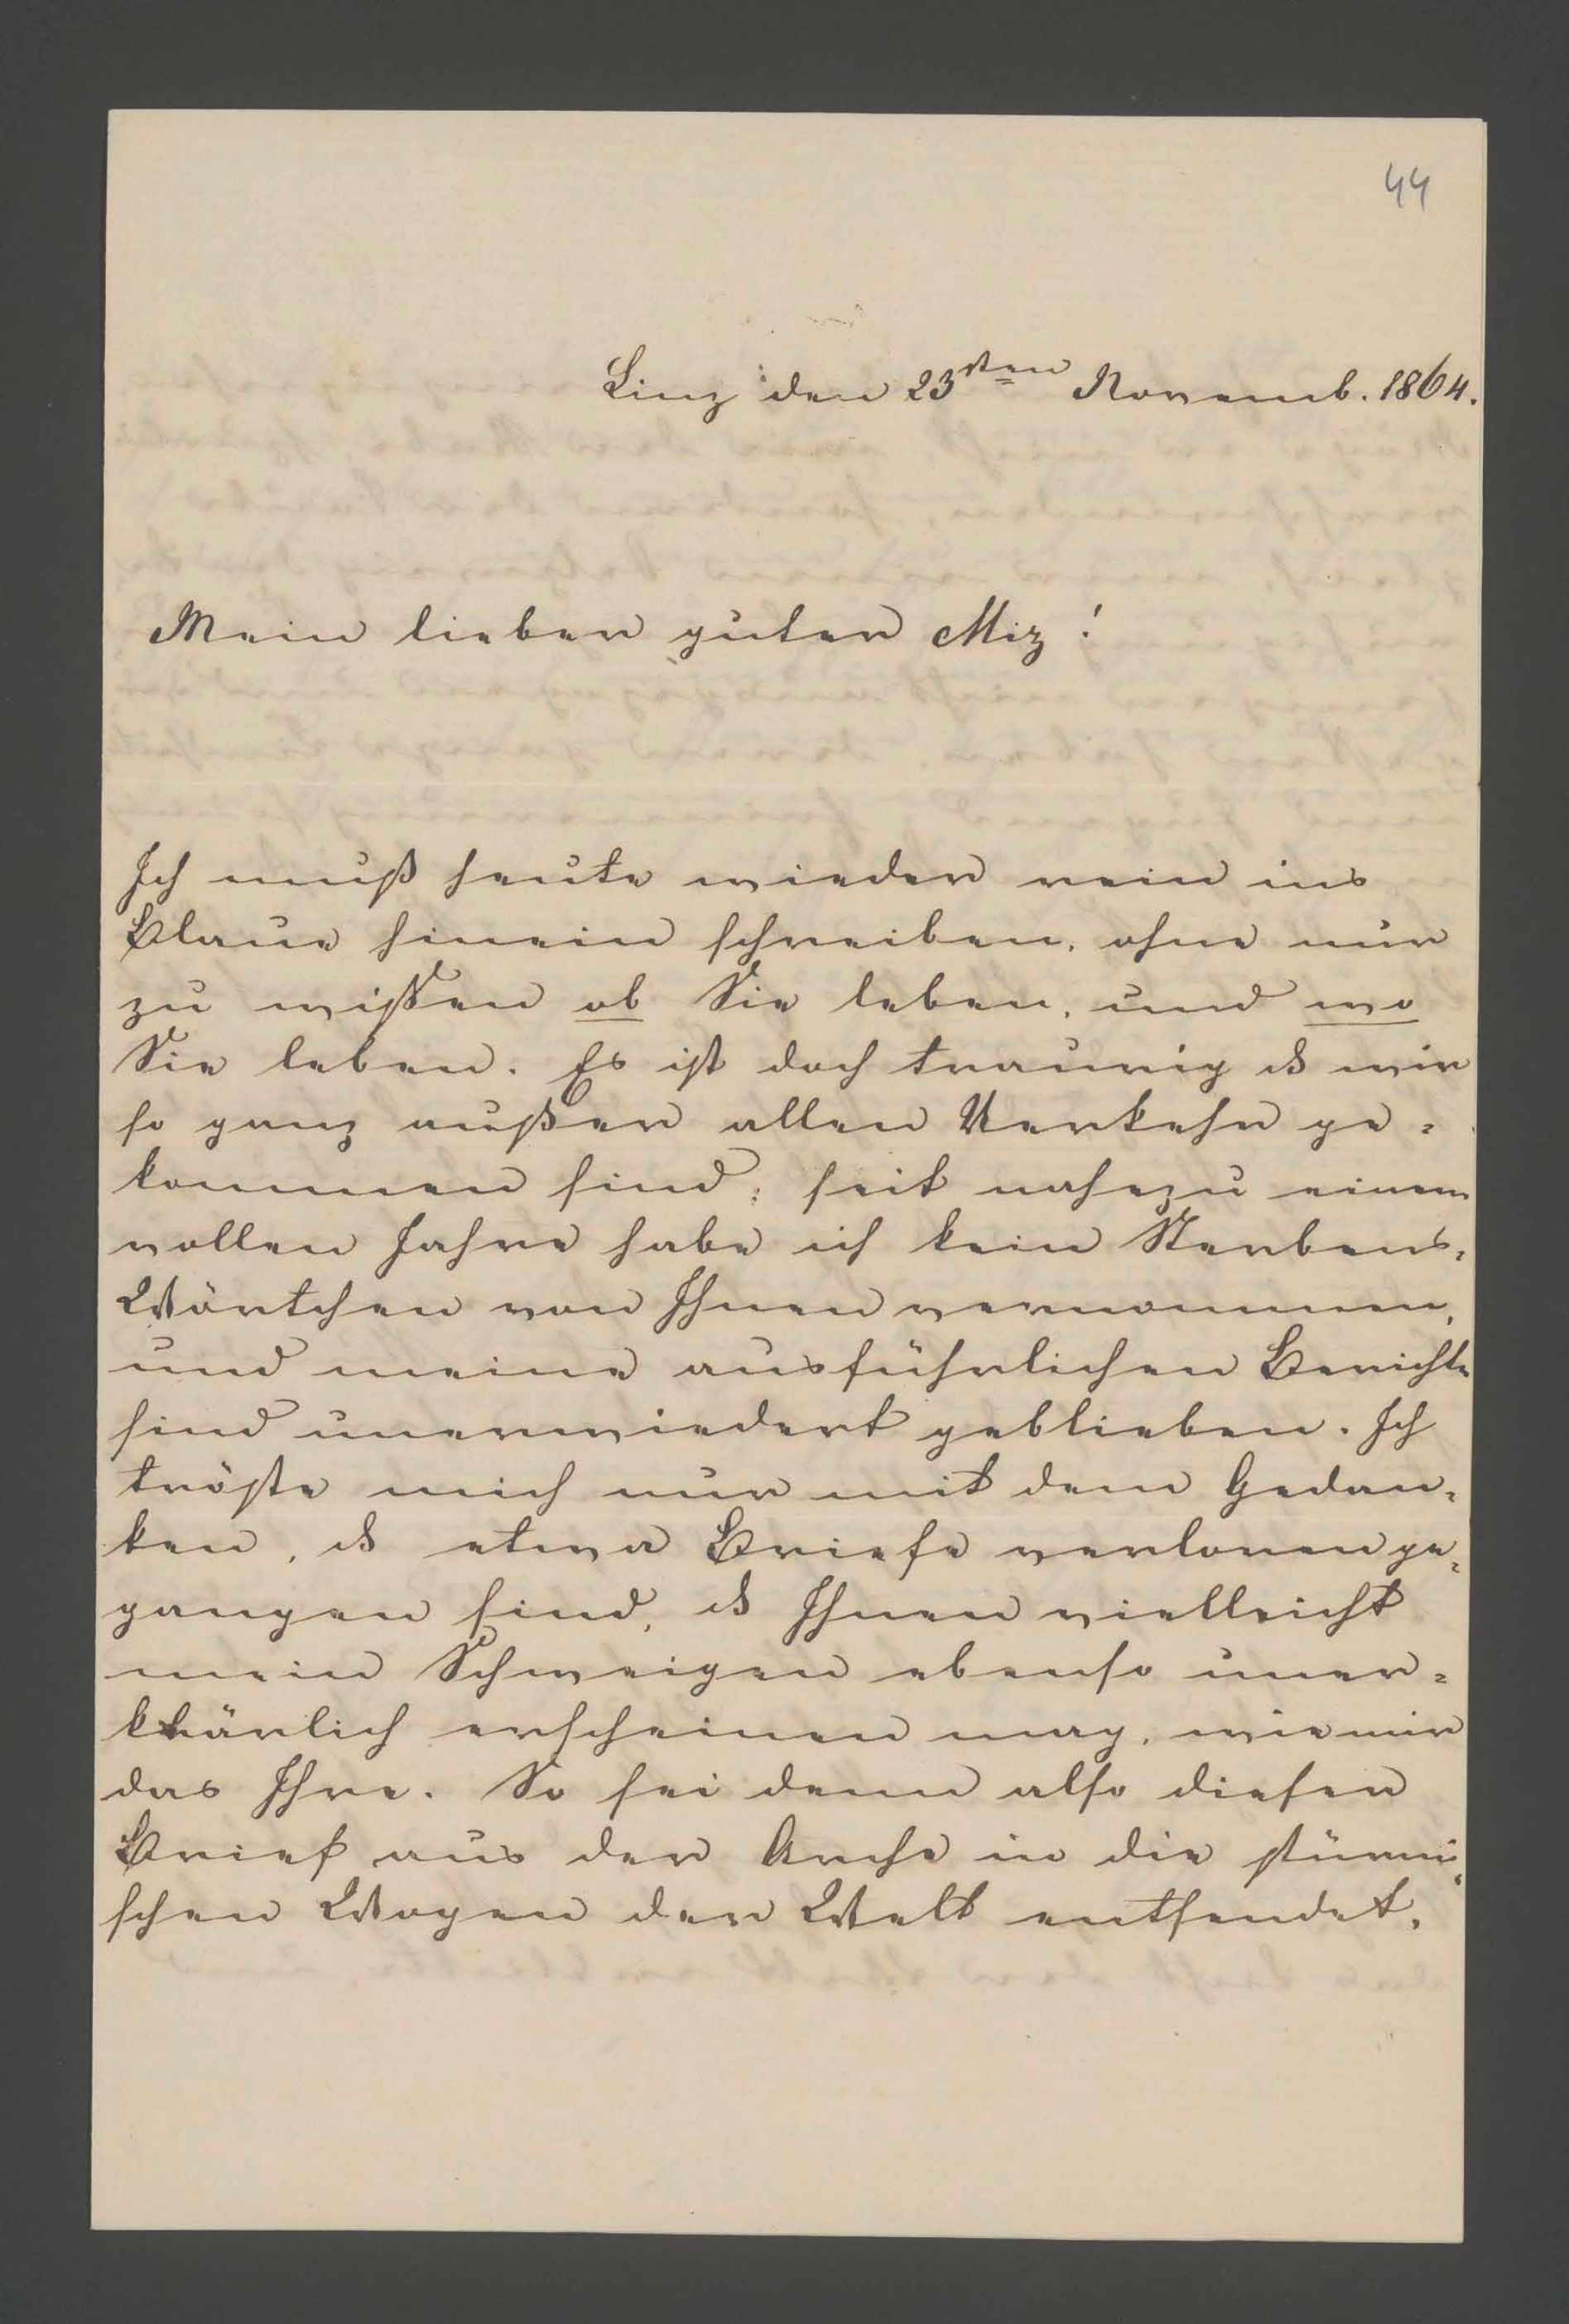 44
Linz den 23sten Novemb. 1864.
Mein lieber guter Miz!
Ich muß heute wieder rein ins
Blaue hinein schreiben, ohne nur
zu wißen ob Sie leben, und wo
Sie leben. Es ist doch traurig dß wir
so ganz außer allen Verkehr ge=
kommen sind; seit nahezu einem
vollen Jahre habe ich kein Sterbens=
Wörtchen von Ihnen vernommen,
und meine ausführlichen Berichte
sind unerwiedert geblieben. Ich
tröste mich nur mit dem Gedan=
ken, dß etwa Briefe verloren ge=
gangen sind, dß Ihnen vielleicht
mein Schweigen ebenso uner=
klärlich erscheinen mag, wie mir
das Ihre. So sei denn also dieser
Brief aus der Arche in die stürmi=
schen Wogen der Welt entsendet,